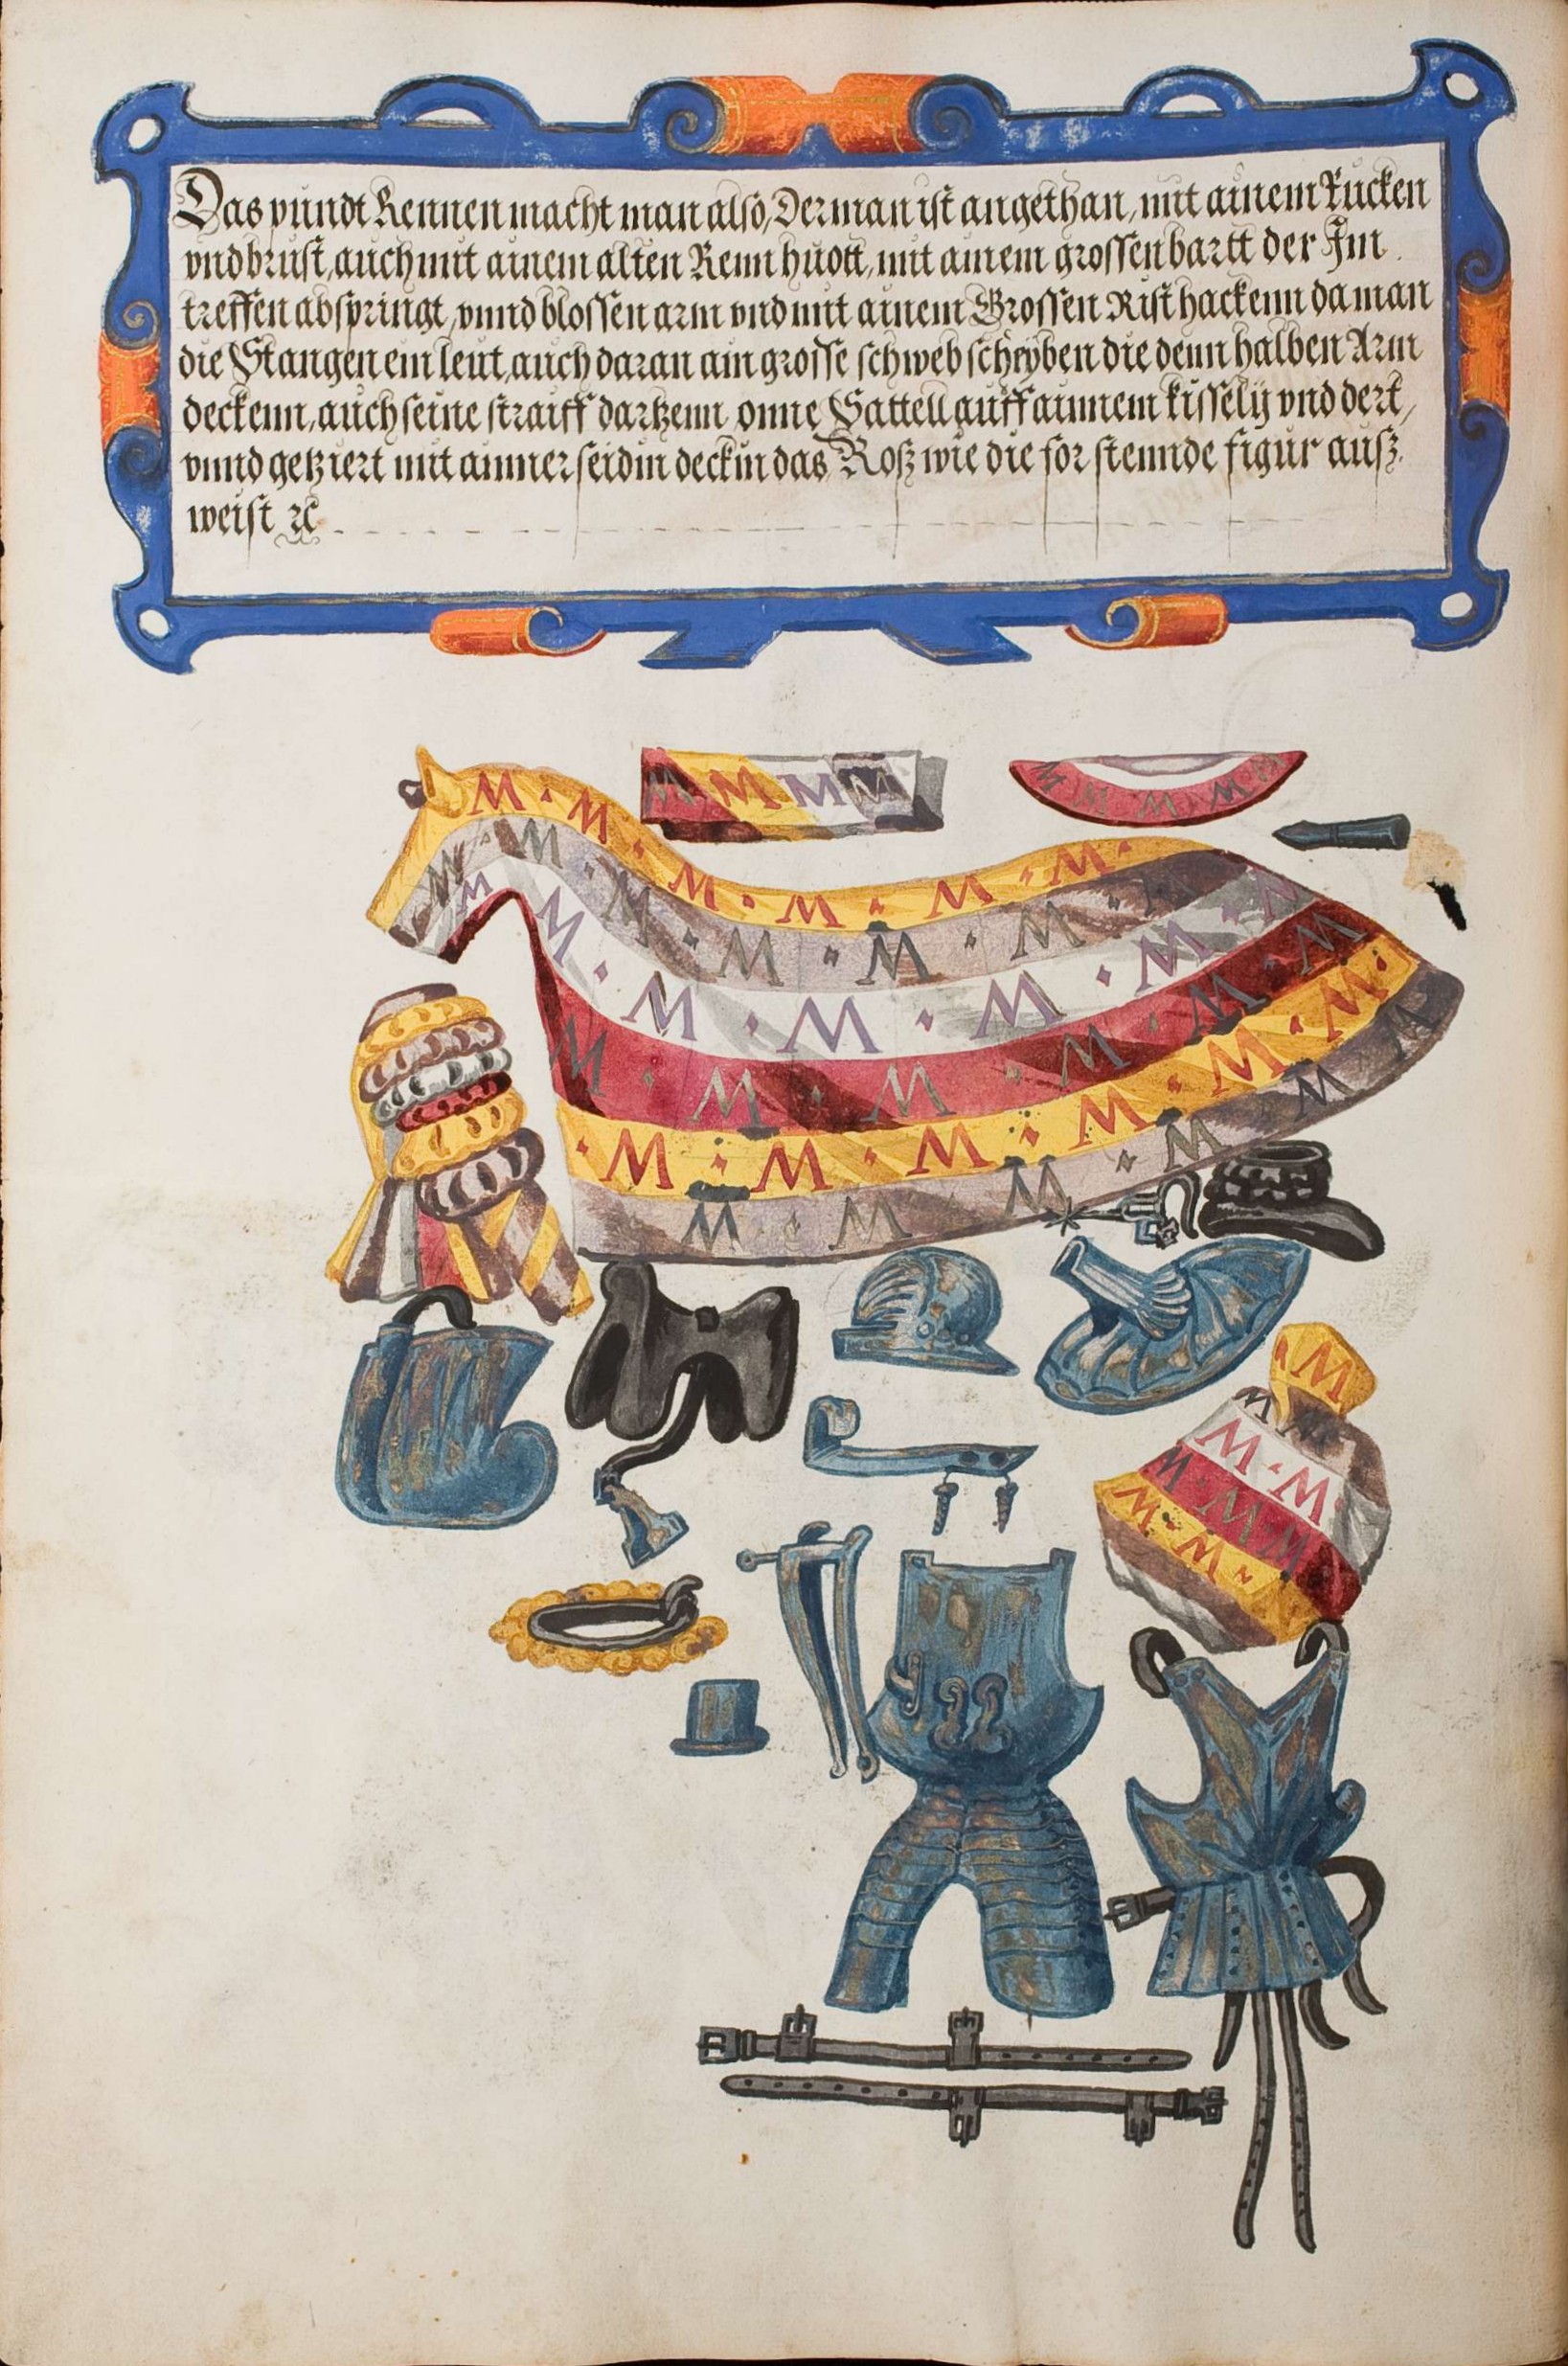 Das pundt Rennen macht man also, Der man ist angethan, mit ainem Rucken
vnd brust, auch mit ainem alten Renn huott, mit ainem grossen bartt der Im
treffen abspringt, vnnd blossen arm vnd mit ainem Grossen Risthackenn da man
die Stangen ein leut, auch daran ain grosse schwebscheyben die denn halben Arm
deckenn, auch seine straiff dartzenn onne Sattell auff ainnem kissely vnd dert,
vnnd getziert mit ainner seidin deckin das Roß wie die for stennde figur ausz
weist ꝛc
M · M · M · M · M · M
M M M M
M M M M M
M M · M · M · M · M
M M · M · M · M · M · M
M · M · M · M · M · M
· M · M · M · M · M · M
M · M · M · M · M · M
· M
M
M · M
M · M · M · M
M · M · M